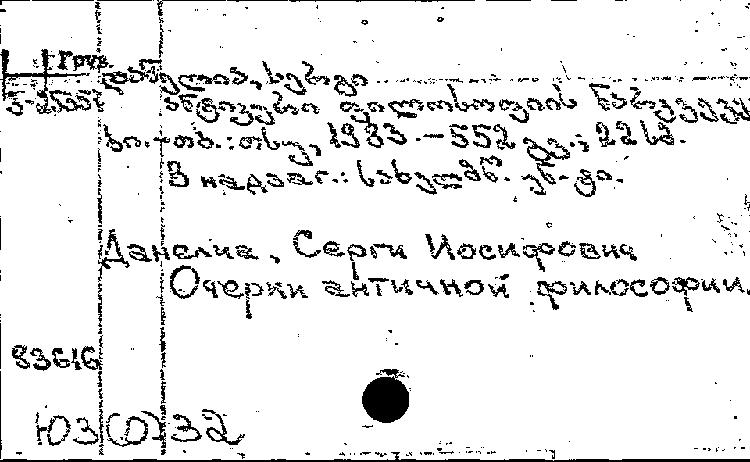 Груз.
დანელია, სერგი
ანტიკური ფილოსოფიის ნარკვევები
თბ.: თსუ, 1983. – 552 გვ.; 22 სმ.
В надзаг.: სახელმწ. უნ-ტი.
Данелиа, Серги Иосифович
Очерки античной философии.
83616
Ю3(0)32